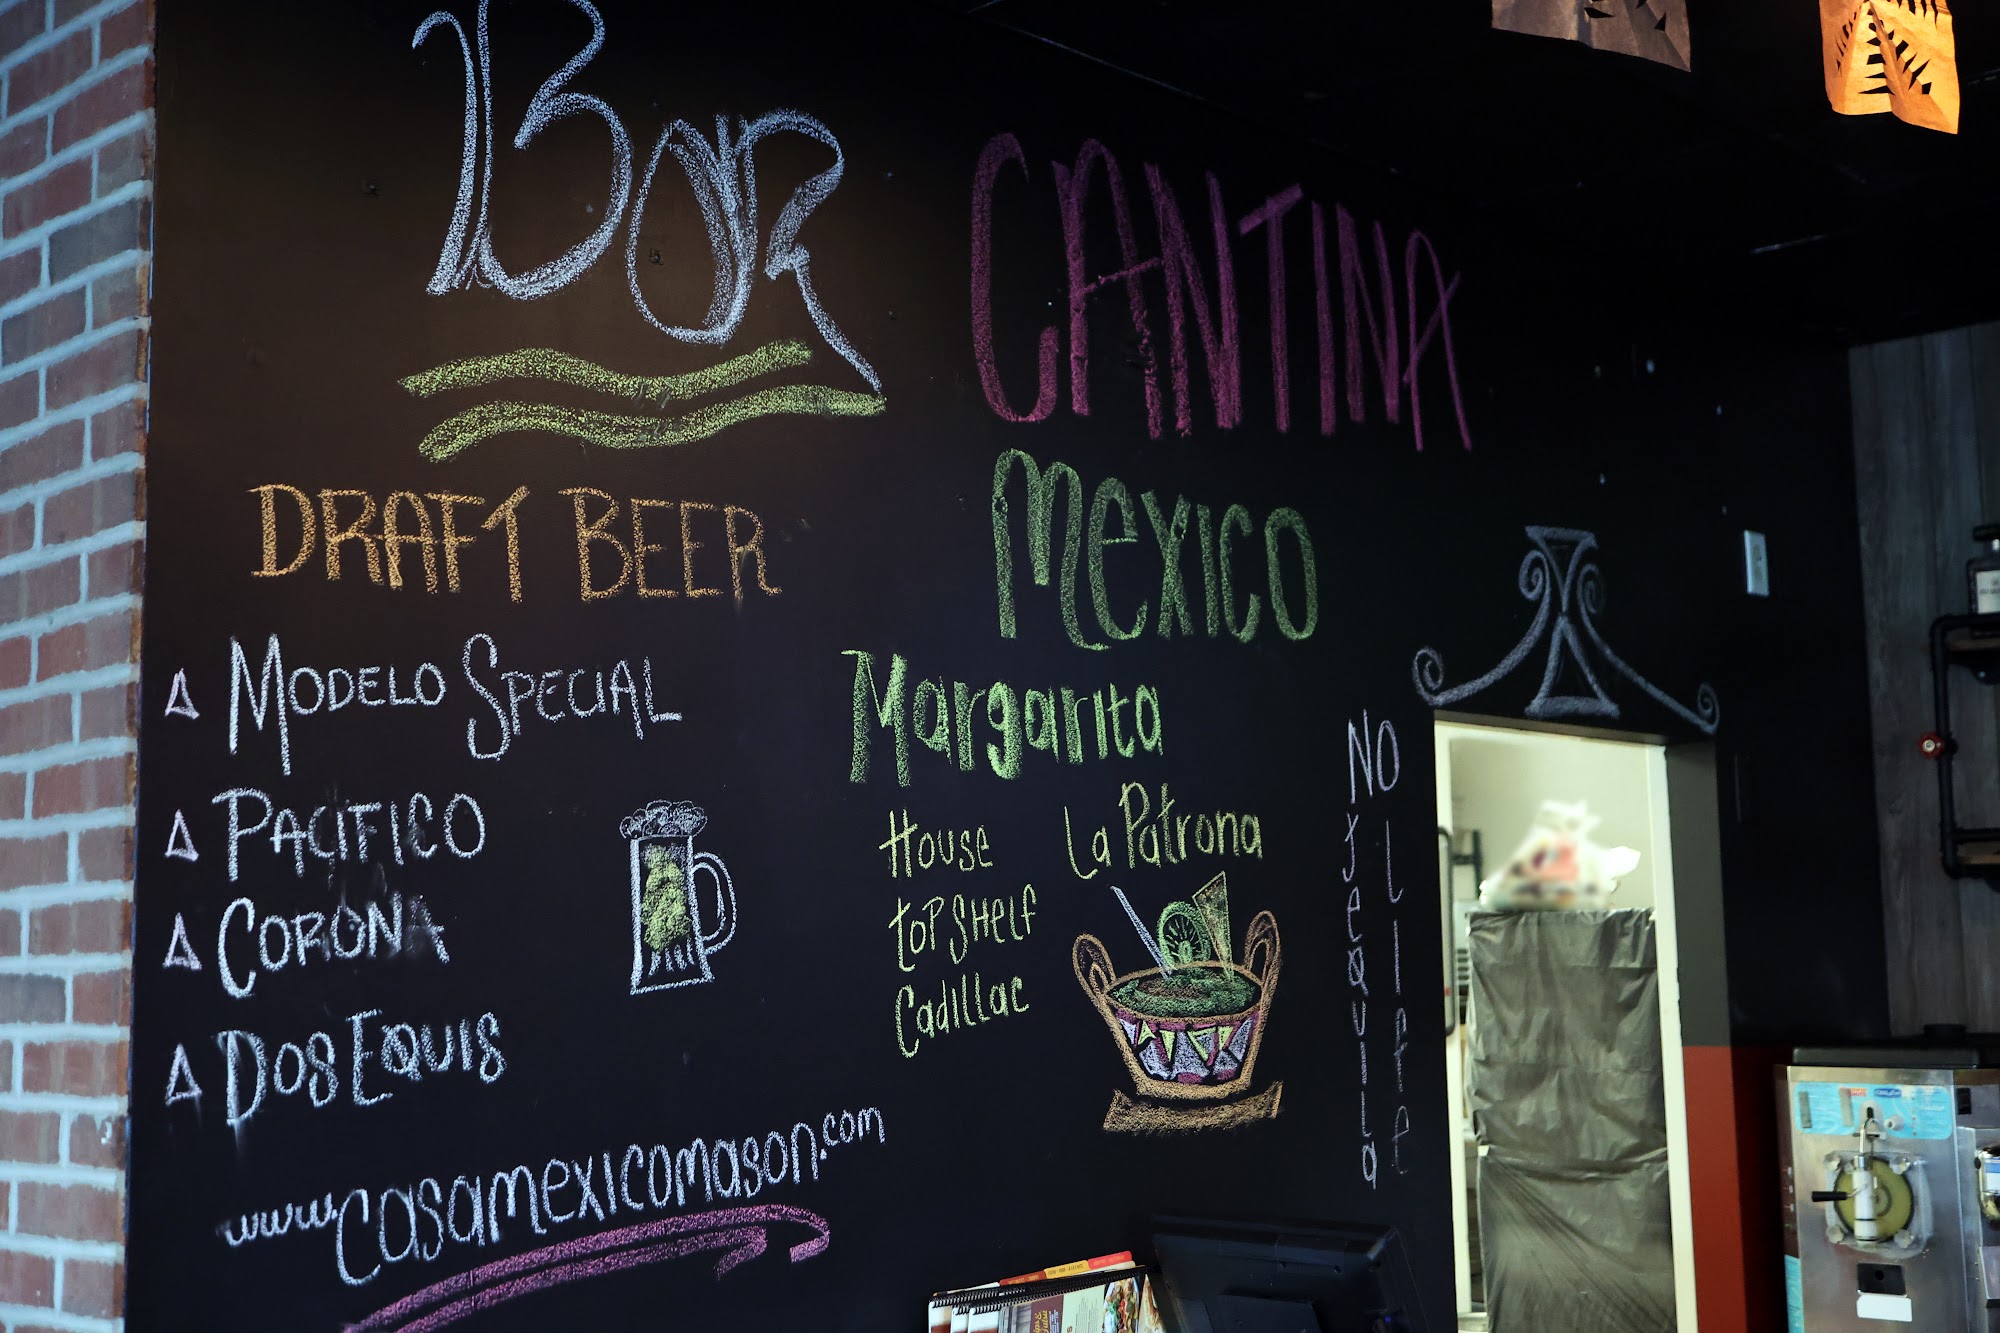 Bar
CANTINA
MEXICO
DRAFT BEER
MODELO SPECIAL
PACIFICO
CORONA
DOS EQUIS
www.casamexicomason.com
Margarita
House
top SHelf
Cadillac
La Patrona
NO LIFE
TEQUILA